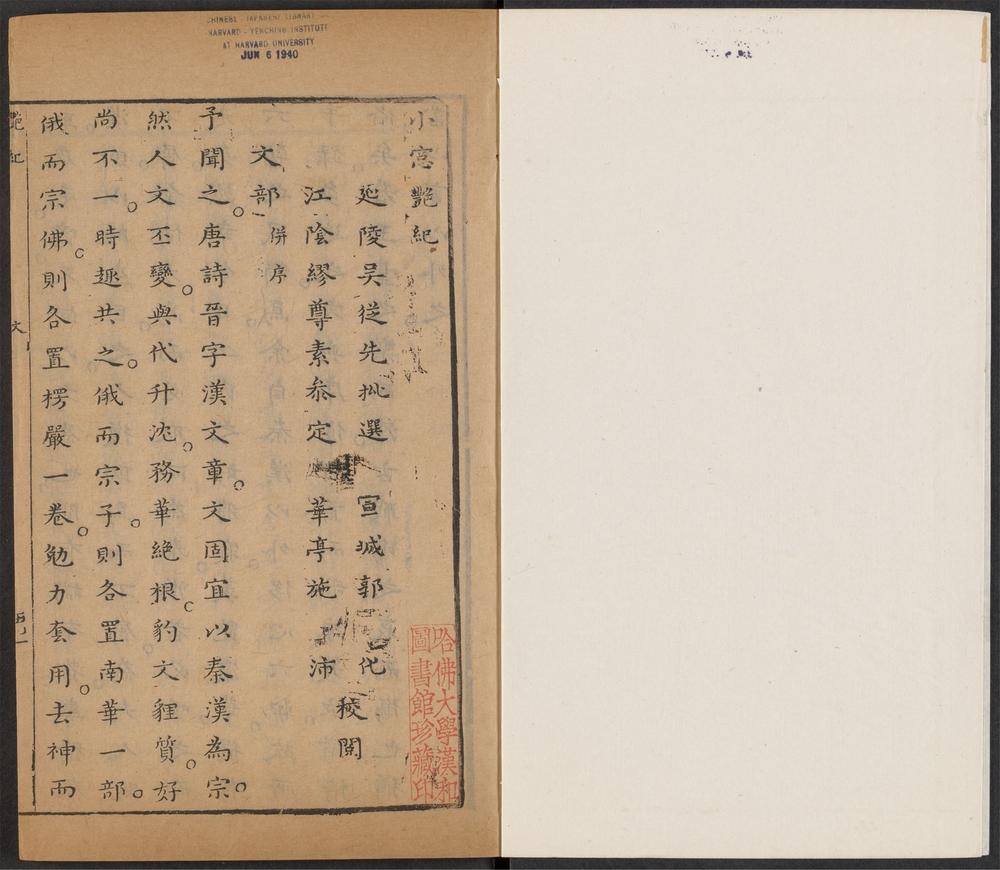 CHINESE - JAPANESE LIBRARY
HARVARD - YENCHING INSTITUTE
AT HARVARD UNIVERSITY
JUN 6 1940
小窓艷紀
延陵吴從先批選 宣城郭 化
江陰繆尊素叅定 華亭施 沛
校閱
文部 併序
予聞之。唐詩晉字漢文章。文固宜以秦漢為宗。
然人文丕變。與代升沈。務華絶根。豹文貍質。好
尚不一。時趣共之。俄而宗子。則各置南華一部。
俄而宗佛。則各置楞嚴一卷。勉力套用。去神而
艷紀
文
哈佛大學漢和
圖書館珍藏印